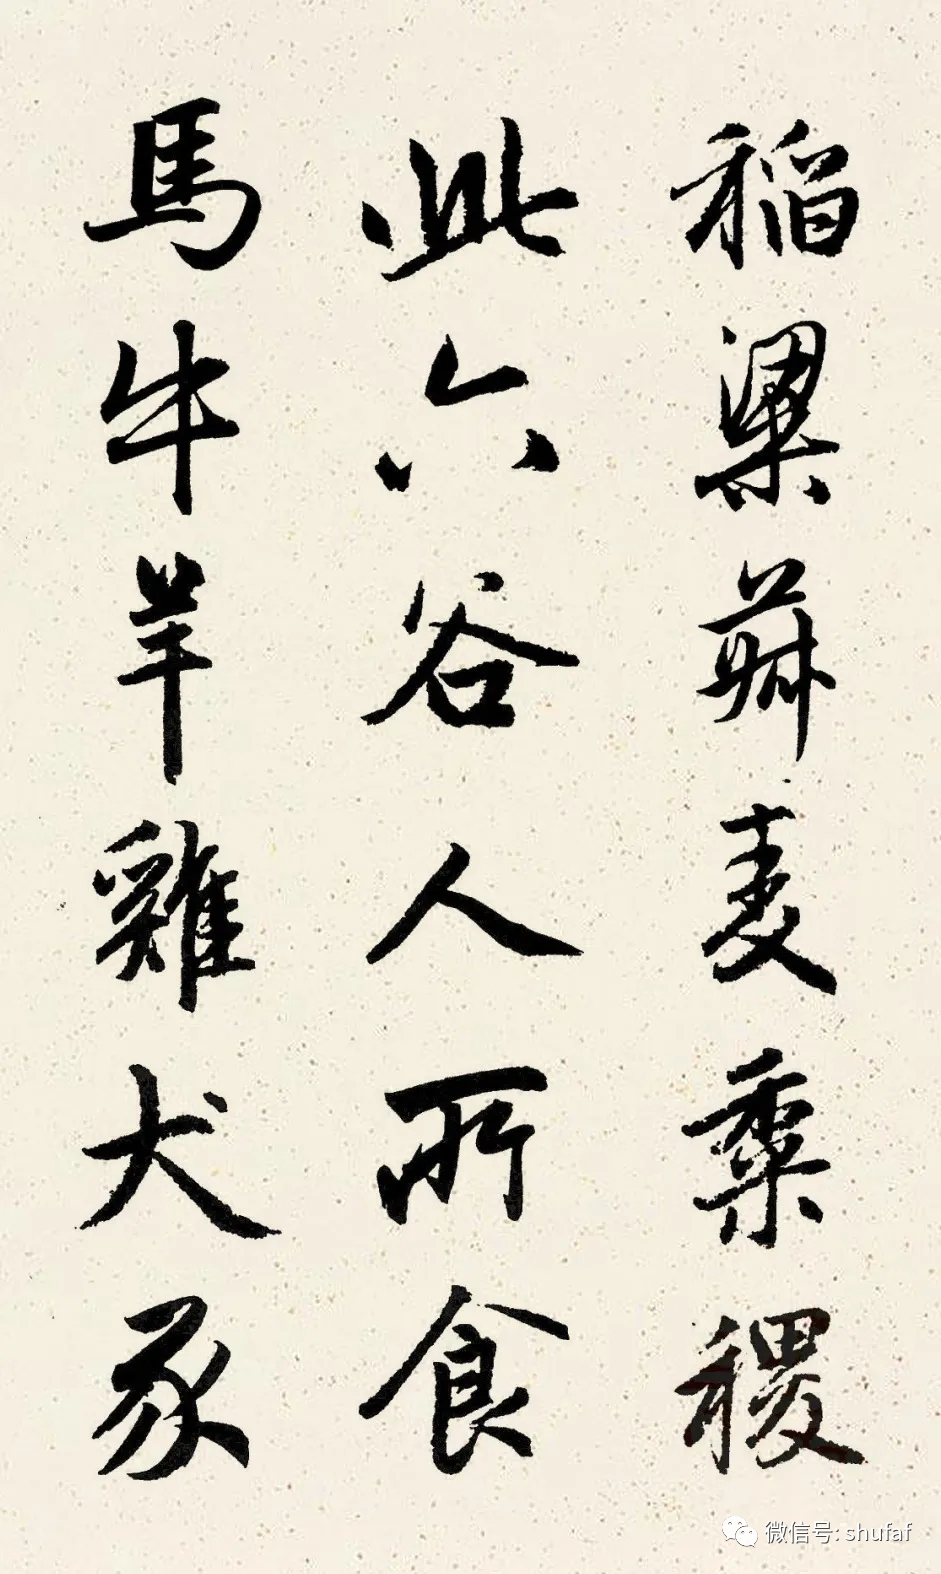 稻粱菽麦黍稷
此六谷人所食
馬牛羊雞犬豕
微信号: shufaf